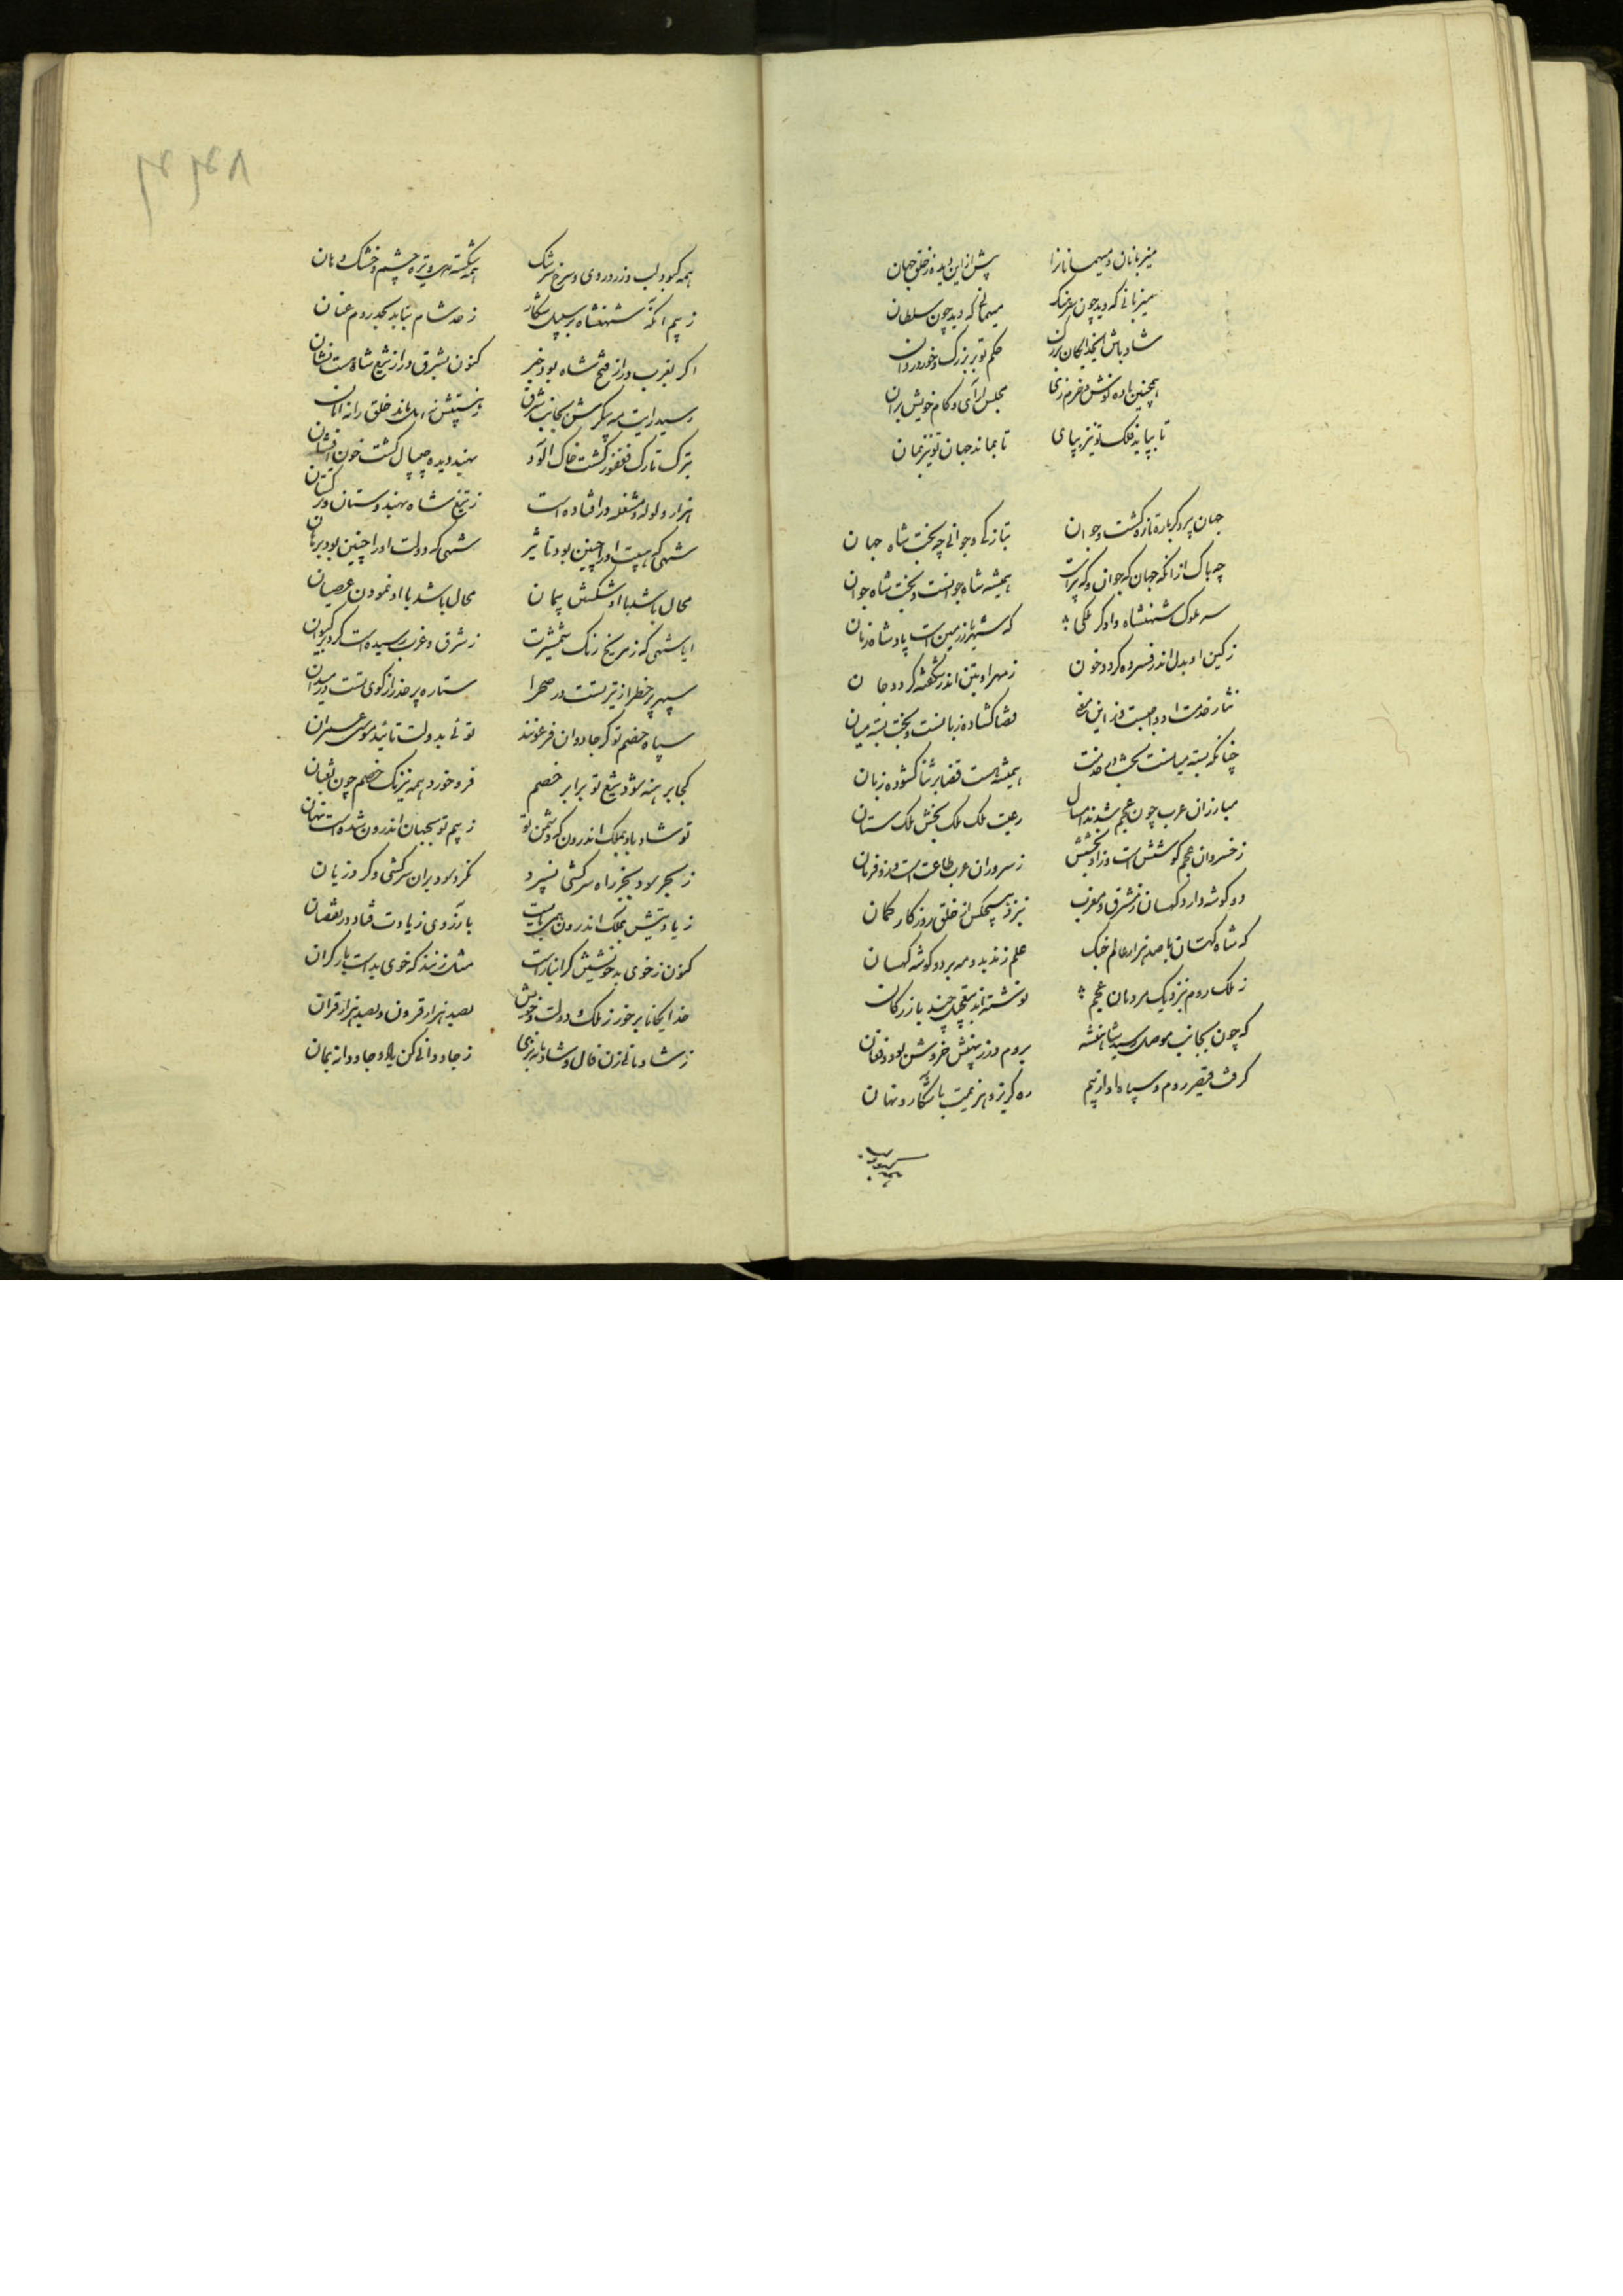 میزبانان و میهمانانرا
پیش ازین دیده از خلق جهان
میزبانی که دید چون سرهنک
میهمانی که دید چون سلطان
شاد باش ایخدایکان بزرک
حکم تو بر بزرک و خورد روان
همچنین باده نوش و خرم زی
مجلس آرای و کام خویش بران
تا بپاید فلک تو نیز بپای
تا بماند جهان تو نیز بمان
جهان پیر دکرباره تازه کشت و جوان
بتازکی و جوانی چو بخت شاه جهان
چه باک از انکه جهان که جوان و که پیرست
همیشه شاه جوانست و بخت شاه جوان
سر ملوک شهنشاه دادکر ملکی
که شهریار زمین است پادشاه زمان
ز کین او بدل اندر فسرده کردد خون
ز مهر او بتن اندر شکفته کردد جان
قضا کشاده زبانست و بخت بسته میان
چنانکه بسته میانست بخت در خدمت
همیشه هست قضا بر ثنا کشوده زبان
مبارزان عرب چون عجم شدند امسال
رعیت ملک ملک بخش ملک ستان
ز خسروان عجم کوشش است وز او بخشش
ز سروران عرب طاعت است وزو فرمان
دو کوشه دارد کیهان ز مشرق و مغرب
نبرد هیچکس از خلق روزکار کمان
که شاه کیهان با صد هزار عالم جنک
علم زند بدو مه بر دو کوشه کیهان
ز ملک روم بنزدیک مردمان عجم
نوشته اند بتعجیل چند بازرکان
که چون بجانب موصل رسید شاهنشه
بروم در ز نهیبش خروش بود و فغان
کرفت قیصر روم و سپاه او از بیم
ره کریز و هزیمت باشکار و نهان
همه کبود
۴۴۸
همه کبود لب و زرد روی و سرخ سرشک
همه شکسته دل و تیره چشم و خشک دهان
ز بیم انکه شهنشاه بر سبیل شکار
ز حد شام بتابد بحد روم عنان
اکر بغرب در از فتح شاه بود خبر
کنون بشرق در از تیغ شاه هست نشان
رسید رایت مه پیکرش بجانب شرق
بترک تارک فغفور کشت خاک الود
بهند دیده چیپال کشت خون افشان
هزار ولوله و مشغله در افتاده است
ز تیغ شاه بهندوستان و ترکستان
شهی که هیبت او را چنین بود تاثیر
شهی که دولت او را چنین بود برهان
محال باشد با او شکستن پیمان
محال باشد با او نمودن عصیان
ایا شهی که ز مریخ رنک شمشیرت
ز شرق و غرب رسیده است کرد بر کیوان
سپهر پر خطر از تیر تست در صحرا
ستاره پر حذر از کوی تست در میدان
سپاه خصم تو کر جادوان فرعونند
توئی بدولت تائید موسی عمران
کجا برهنه شود تیغ تو برابر خصم
فرو خورد همه نیرنک خصم چون ثعبان
تو شاد باد بملک اندرون که دشمن تو
ز بیم تو بجهان اندرون شده است نهان
ز بهر سود بجز راه سرکشی نسپرد
نکرد سود بران سرکشی و کرد زیان
زیادتیش بملک اندرون همی بایست
بارزوی زیادت فتاد در نقصان
کنون ز خوی بد خویشتن کرانبار است
مثل زنند که خوی بد است بار کران
خدایکانا برخور ز ملک و دولت خویش
بصد هزار قرون و بصد هزار قران
ز شادمانی زن فال و شادمانه بزی
ز جاودانی کن یاد و جاودانه بمان